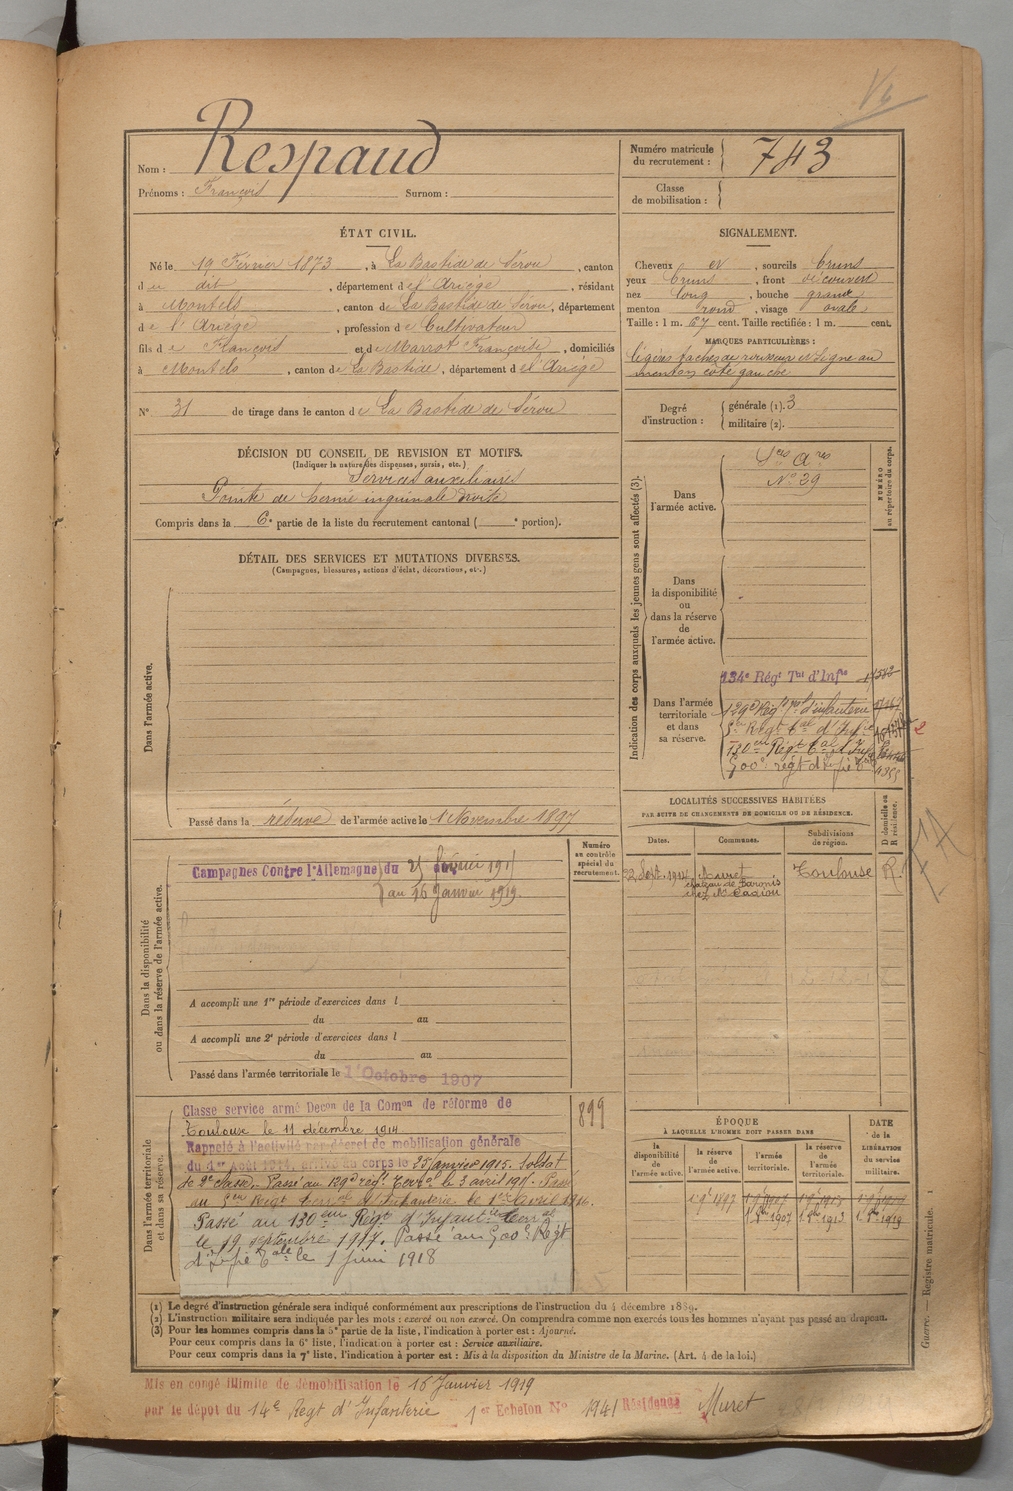 Nom : Respaud
Prénoms : François Surnom :
Numéro matricule du recrutement : 743
Classe de mobilisation :
ÉTAT CIVIL.
Né le 19 Février 1873, à La Bastide de Sérou, canton
du dit, département de l'Ariège, résidant
à Montels, canton de La Bastide de Sérou, département
de l'Ariège, profession de Cultivateur
fils de François et de Marrot Françoise, domiciliés
à Montels, canton de La Bastide, département de l'Ariège
N° 31 de tirage dans le canton de La Bastide de Sérou
SIGNALEMENT.
Cheveux et, sourcils bruns
yeux bruns, front découvert
nez long, bouche grande
menton rond, visage ovale
Taille : 1 m. 67 cent. Taille rectifiée : 1 m. cent.
MARQUES PARTICULIÈRES :
légères taches de rousseur et signe au
menton côté gauche
Degré d'instruction : générale (1). 3
militaire (2).
DÉCISION DU CONSEIL DE REVISION ET MOTIFS.
(Indiquer la nature des dispenses, sursis, etc.)
Services auxiliaires
Pointe de hernie inguinale droite
Compris dans la 6e partie de la liste du recrutement cantonal ( e portion).
DÉTAIL DES SERVICES ET MUTATIONS DIVERSES.
(Campagnes, blessures, actions d'éclat, décorations, etc.)
Dans l'armée active.
Passé dans la réserve de l'armée active le 1 Novembre 1897
Indication des corps auxquels les jeunes gens sont affectés (3).
NUMÉRO au répertoire du corps.
Dans l'armée active.
Ses Ares
N° 29
Dans la disponibilité ou dans la réserve de l'armée active.
Dans l'armée territoriale et dans sa réserve.
134e Régt Tal d'Infie
129e Régt Tal d'infanterie
5e Régt Tal d'Infie
130eme Régt Tal d'Infie
500e régt d'Infie Tale
Dans la disponibilité ou dans la réserve de l'armée active.
Numéro au contrôle spécial du recrutement.
Campagnes Contre l'Allemagne du 25 février 1915
au 16 Janvier 1919.
A accompli une 1re période d'exercices dans l
du au
A accompli une 2e période d'exercices dans l
du au
Passé dans l'armée territoriale le 1er Octobre 1907
LOCALITÉS SUCCESSIVES HABITÉES
PAR SUITE DE CHANGEMENTS DE DOMICILE OU DE RÉSIDENCE.
Dates. Communes. Subdivisions de région. D domicile ou R résidence.
22 Sept. 1914 Muret Toulouse R.
Dans l'armée territoriale et dans sa réserve.
899
Classe service armé Decon de la Comon de réforme de
Toulouse le 11 décembre 1914.
Rappelé à l'activité par décret de mobilisation générale
du 1er Août 1914. arrivé au corps le 25 janvier 1915. Soldat
de 2e classe. Passé au 129e régt Terral le 3 avril 1915. Passé
au 5em Regt Terral d'Infanterie le 1er Avril 1916.
Passé au 130em Régt d'Infantie Terral
le 19 septembre 1917. Passé au 500e Régt
d'Infie Tale le 1 juin 1918
ÉPOQUE
À LAQUELLE L'HOMME DOIT PASSER DANS
la disponibilité de l'armée active. la réserve de l'armée active. l'armée territoriale. la réserve de l'armée territoriale. DATE de la LIBÉRATION du service militaire.
1 9bre 1897
1 8bre 1907 1 8bre 1913 1 8bre 1919
(1) Le degré d'instruction générale sera indiqué conformément aux prescriptions de l'instruction du 4 décembre 1889.
(2) L'instruction militaire sera indiquée par les mots : exercé ou non exercé. On comprendra comme non exercés tous les hommes n'ayant pas passé au drapeau.
(3) Pour les hommes compris dans la 5e partie de la liste, l'indication à porter est : Ajourné.
Pour ceux compris dans la 6e liste, l'indication à porter est : Service auxiliaire.
Pour ceux compris dans la 7e liste, l'indication à porter est : Mis à la disposition du Ministre de la Marine. (Art. 4 de la loi.)
Guerre. — Registre matricule. 1
Mis en congé illimité de démobilisation le 16 Janvier 1919
par le dépôt du 14e Regt d'Infanterie 1er Echelon N° 1941 Résidence Muret